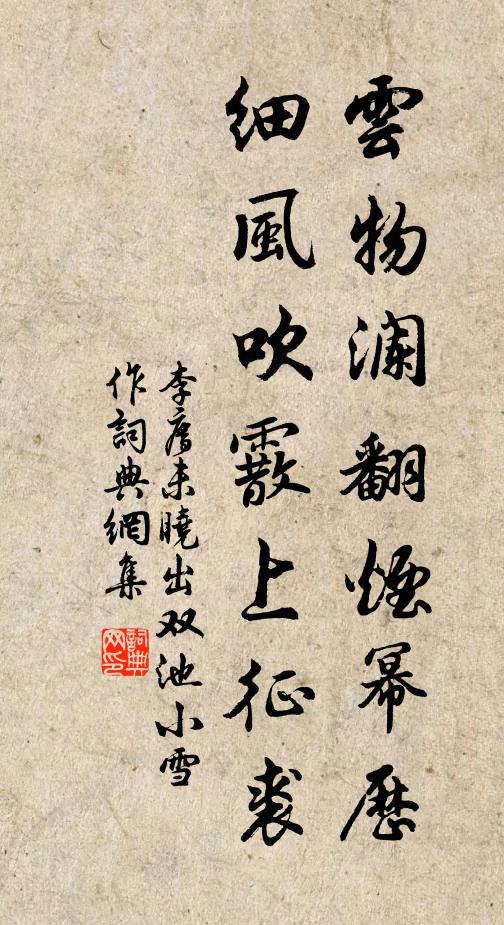 雲物瀾翻煙幂歷
細風吹霰上征裘
李廌未曉出双池小雪
作詞典網集
詞典网印